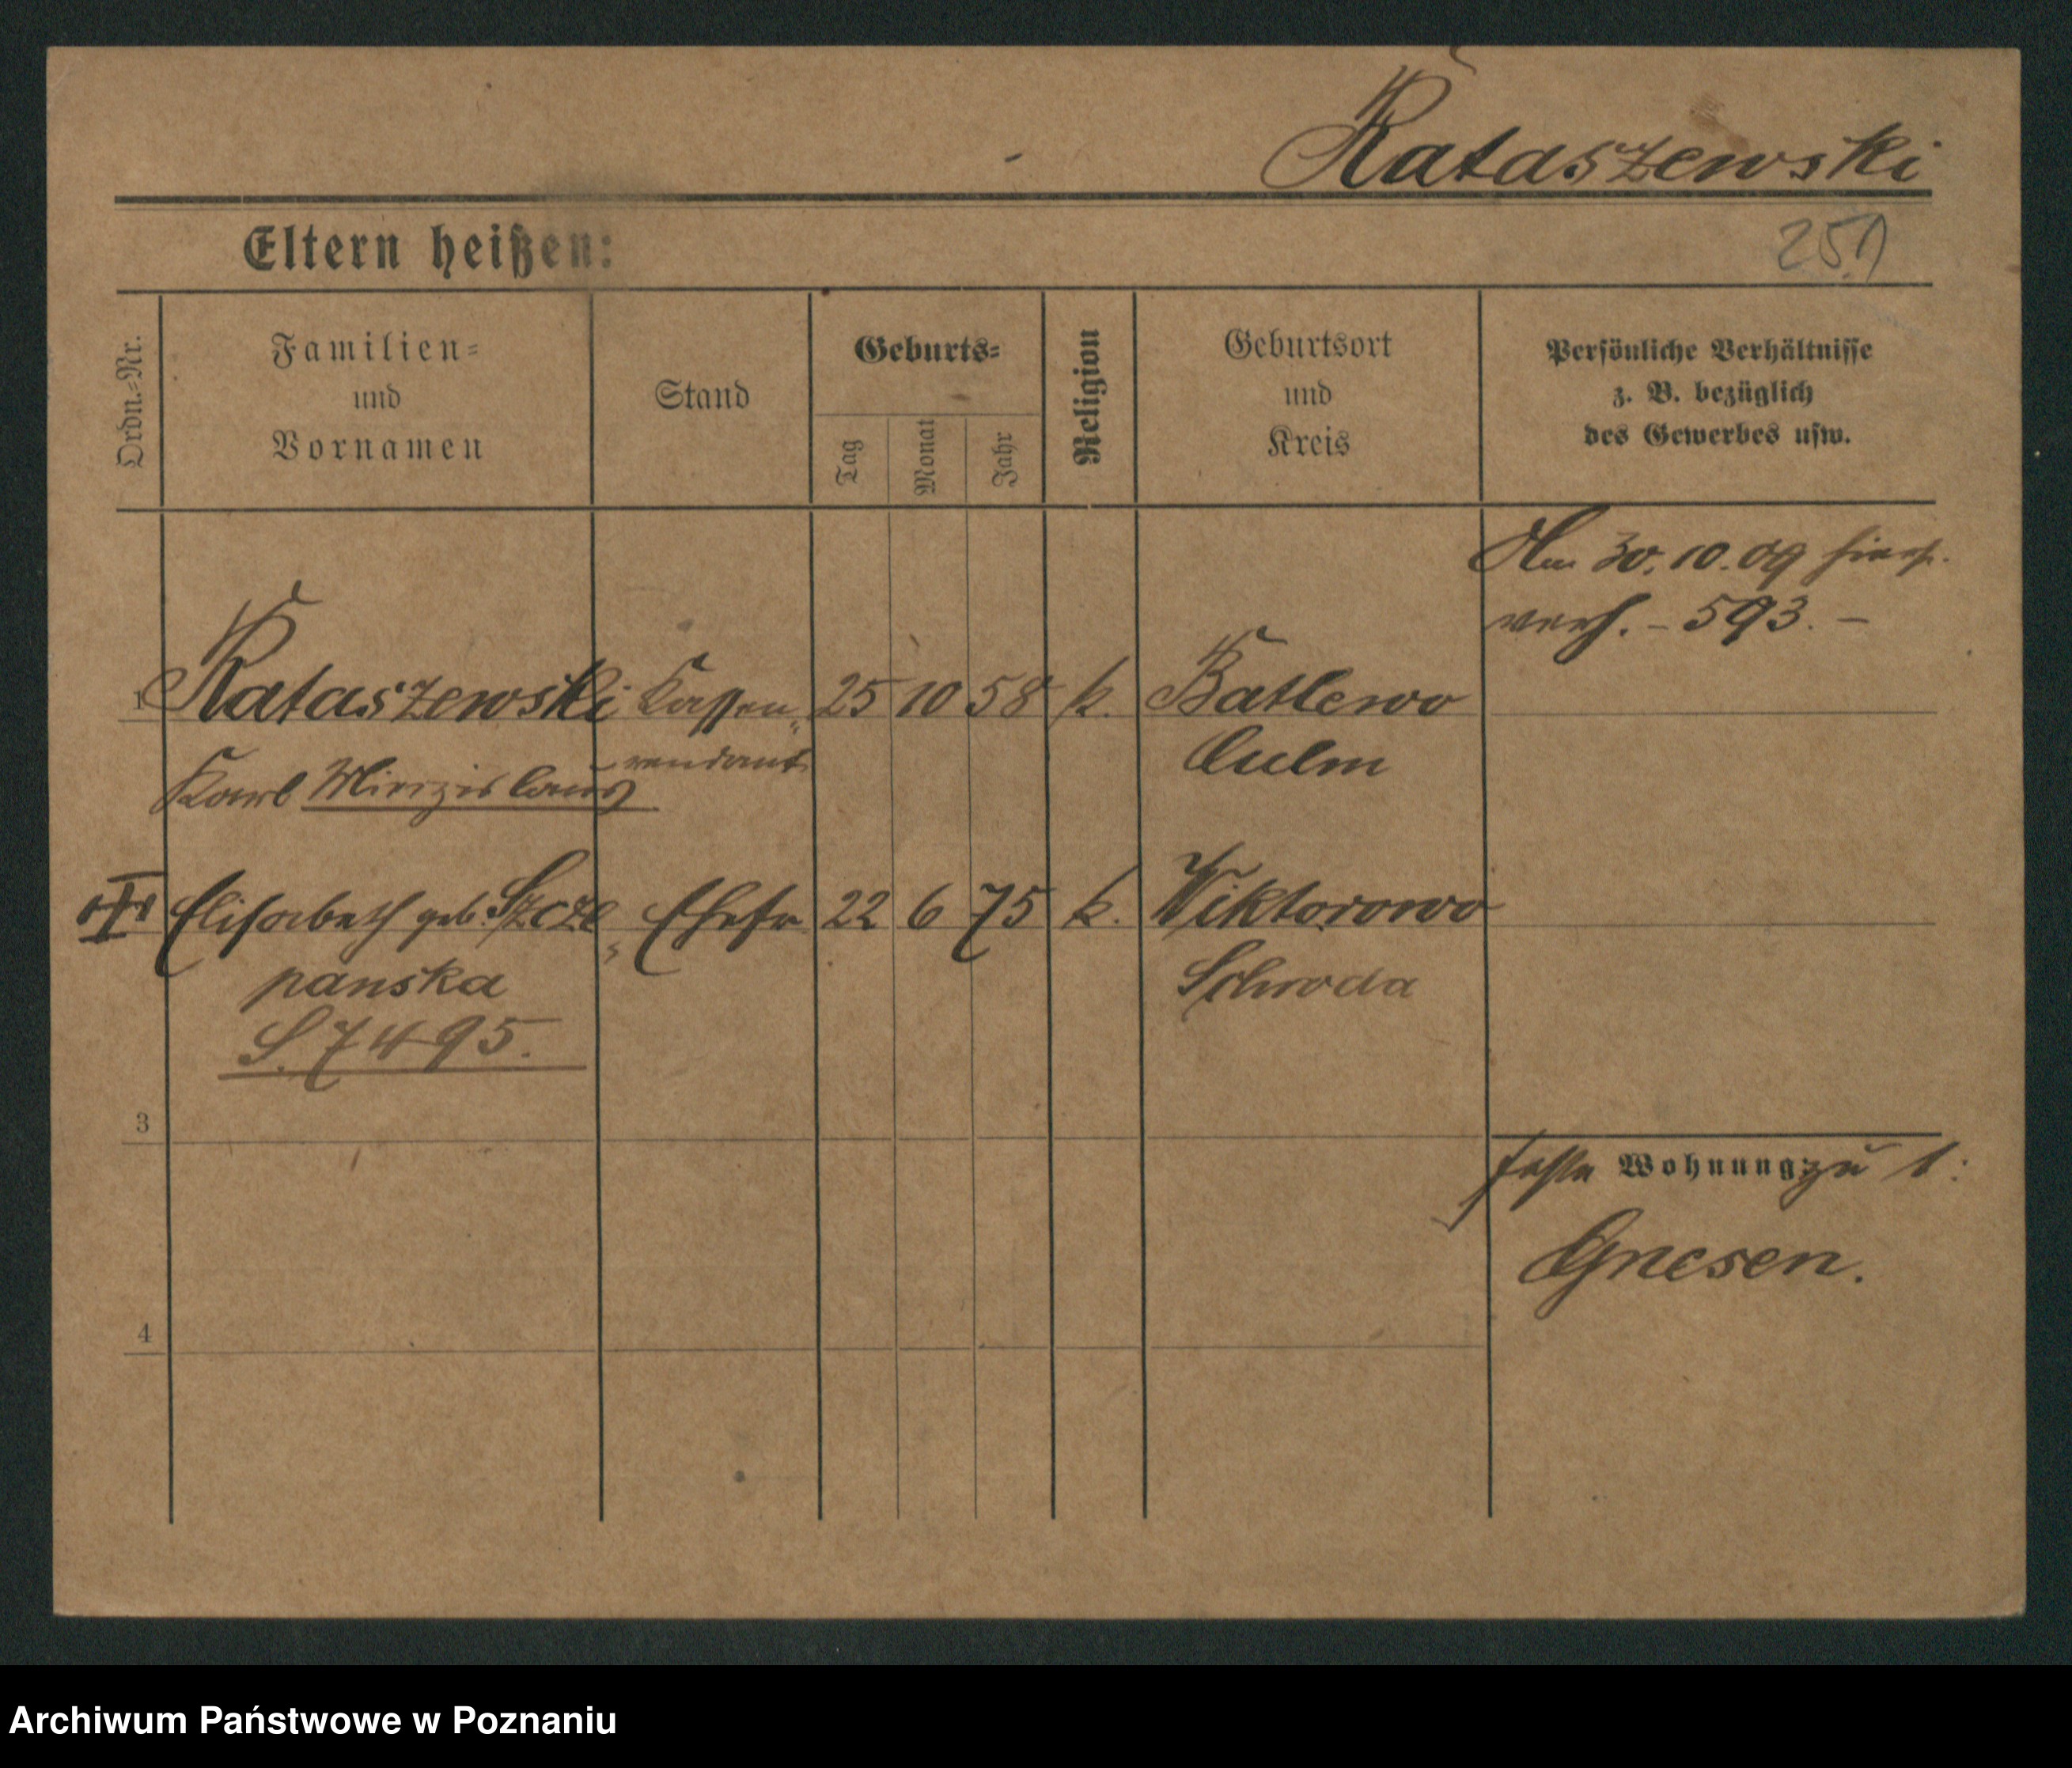 Rataszewski
Eltern heißen:
251
Ordn.-Nr.
Familien-
und
Vornamen
Stand
Geburts-
Tag
Monat
Jahr
Religion
Geburtsort
und
Kreis
Persönliche Verhältnisse
z. B. bezüglich
des Gewerbes usw.
Am 30.10.09 hier
verh. - 593. -
1 Rataszewski Kassen- 25 10 58 k. Batlewo
rendant Culm
Karl Miecislaus
II Elisabeth geb. Szcze- Ehefr 22 6 75 k. Wiktorowo
panska Schroda
S. 7495.
3
feste Wohnung zu 1:
Gnesen.
4
Archiwum Państwowe w Poznaniu